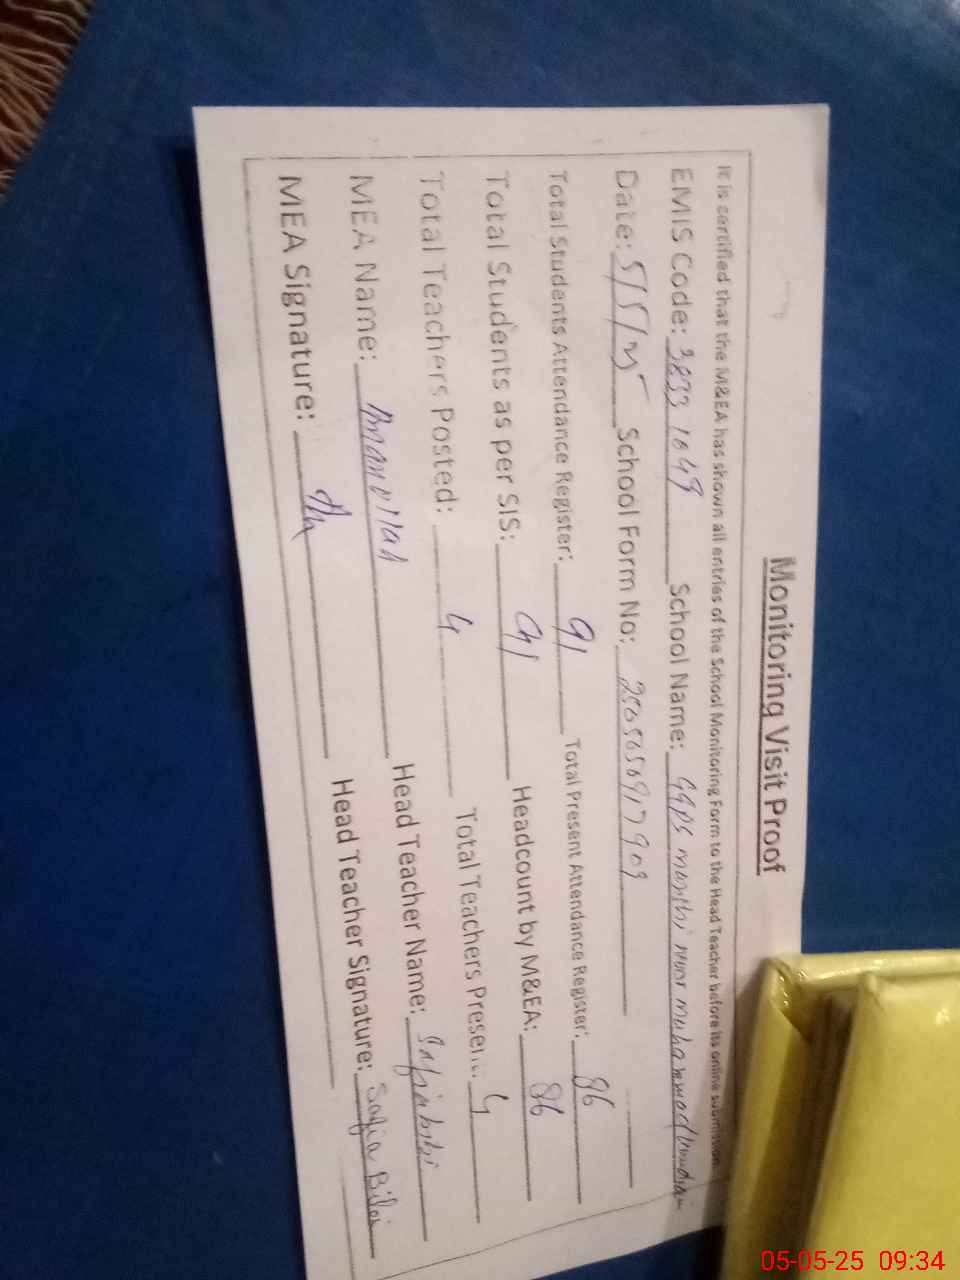 Monitoring Visit Proof
It is certified that the M&EA has shown all entries of the School Monitoring Form to the Head Teacher before its online submission.
EMIS Code: 3833 1049 School Name: GGPS noor
Date: 5/5/25 School Form No: 2505050917909
Total Students Attendance Register: 91 Total Present Attendance Register: 86
Total Students as per SIS: 91 Headcount by M&EA: 86
Total Teachers Posted: 4 Total Teachers Present: 4
MEA Name: Amanullah Head Teacher Name:
MEA Signature: Head Teacher Signature: Safia Bibi
05-05-25 09:34